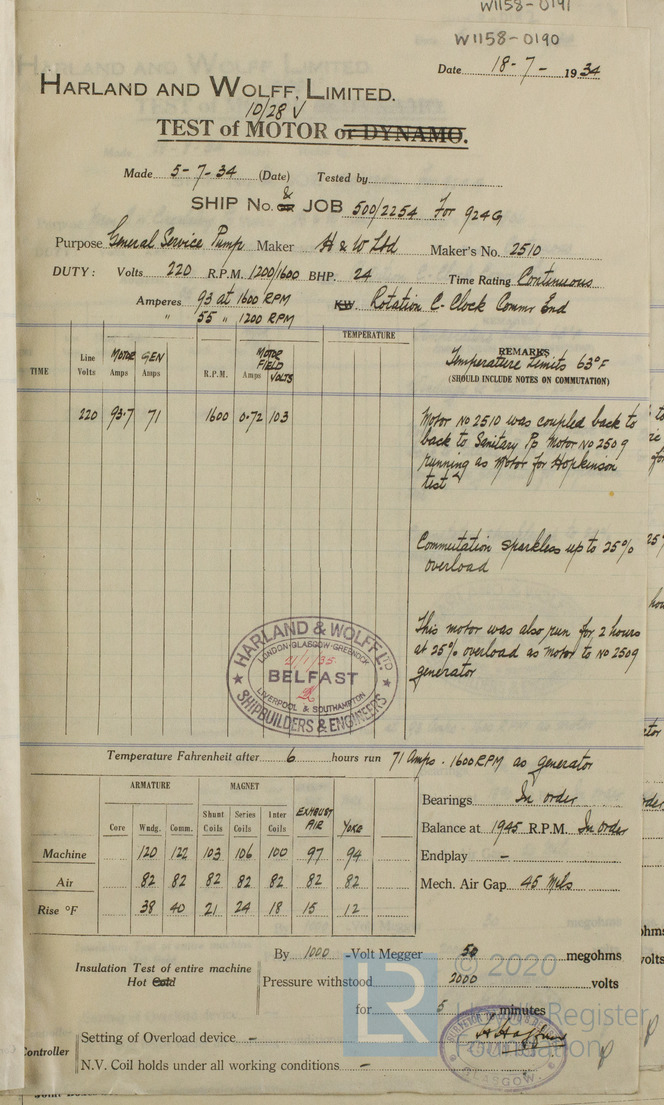 W1158-0191
W1158-0190
Date 18-7-1934
HARLAND AND WOLFF, LIMITED.
10/28 V
TEST of MOTOR or DYNAMO.
Made 5-7-34 (Date) Tested by
&
SHIP No. or JOB 500/2254 For 924G
Purpose General Service Pump Maker H & W Ltd Maker's No. 2510
DUTY: Volts 220 R.P.M. 1200/1600 BHP. 24 Time Rating Continuous
Amperes 93 at 1600 RPM KW Rotation C-Clock Commr End
" 55 " 1200 RPM
TEMPERATURE
TIME Line Volts MOTOR Amps GEN Amps R.P.M. MOTOR FIELD Amps VOLTS
REMARKS
Temperature Limits 63°F
(SHOULD INCLUDE NOTES ON COMMUTATION)
220 93.7 71 1600 0.72 103
Motor No 2510 was coupled back to
back to Sanitary Pp Motor No 2509
running as Motor for Hopkinson
test
Commutation sparkless up to 25%
overload
This motor was also run for 2 hours
at 25% overload as motor to No 2509
generator
HARLAND & WOLFF LTD
LONDON-GLASGOW-GREENOCK
21/1/35
BELFAST
LIVERPOOL & SOUTHAMPTON
SHIPBUILDERS & ENGINEERS
Temperature Fahrenheit after 6 hours run 71 Amps. 1600 RPM as generator
ARMATURE MAGNET
Core Wndg. Comm. Shunt Coils Series Coils Inter Coils EXHAUST AIR YOKE
Machine 120 122 103 106 100 97 94
Air 82 82 82 82 82 82 82
Rise °F 38 40 21 24 18 15 12
Bearings In order
Balance at 1945 R.P.M. In order
Endplay -
Mech. Air Gap 45 Mils
Insulation Test of entire machine
Hot Cold
By 1000 -Volt Megger 50 megohms
Pressure withstood 2000 volts
for 5 minutes
Controller
Setting of Overload device -
N.V. Coil holds under all working conditions -
GLASGOW.
LR
© 2020
Register
Foundation